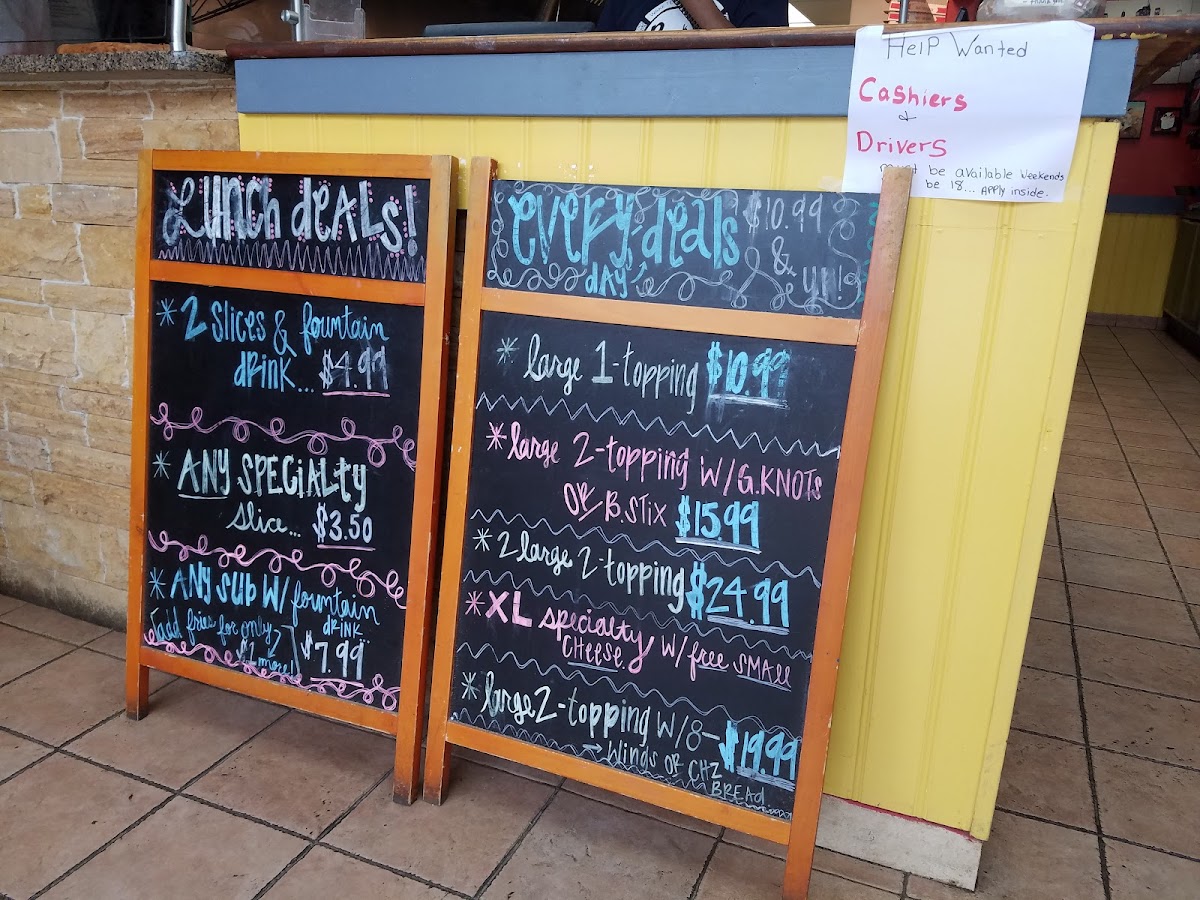 Help Wanted
Cashiers
&
Drivers
be available weekends
be 18... Apply inside.
Lunch deals!
* 2 slices & fountain
drink... $4.99
* ANY SPECIALTY
slice... $3.50
* ANY SUB W/ fountain
DRINK...
add fries for only
$1 more! $7.99
every deals $10.99
DAY & up!
* large 1-topping $10.99
* large 2-topping W/G.KNOTS
OR B.STIX $15.99
* 2 large 2-topping $24.99
* XL specialty W/ free SMALL
CHEESE.
* large 2-topping W/8-
→ Wings OR CHZ $19.99
BREAD